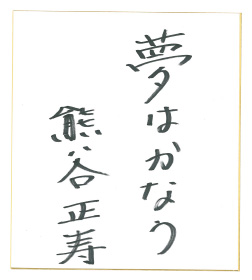 夢はかなう
熊谷正寿